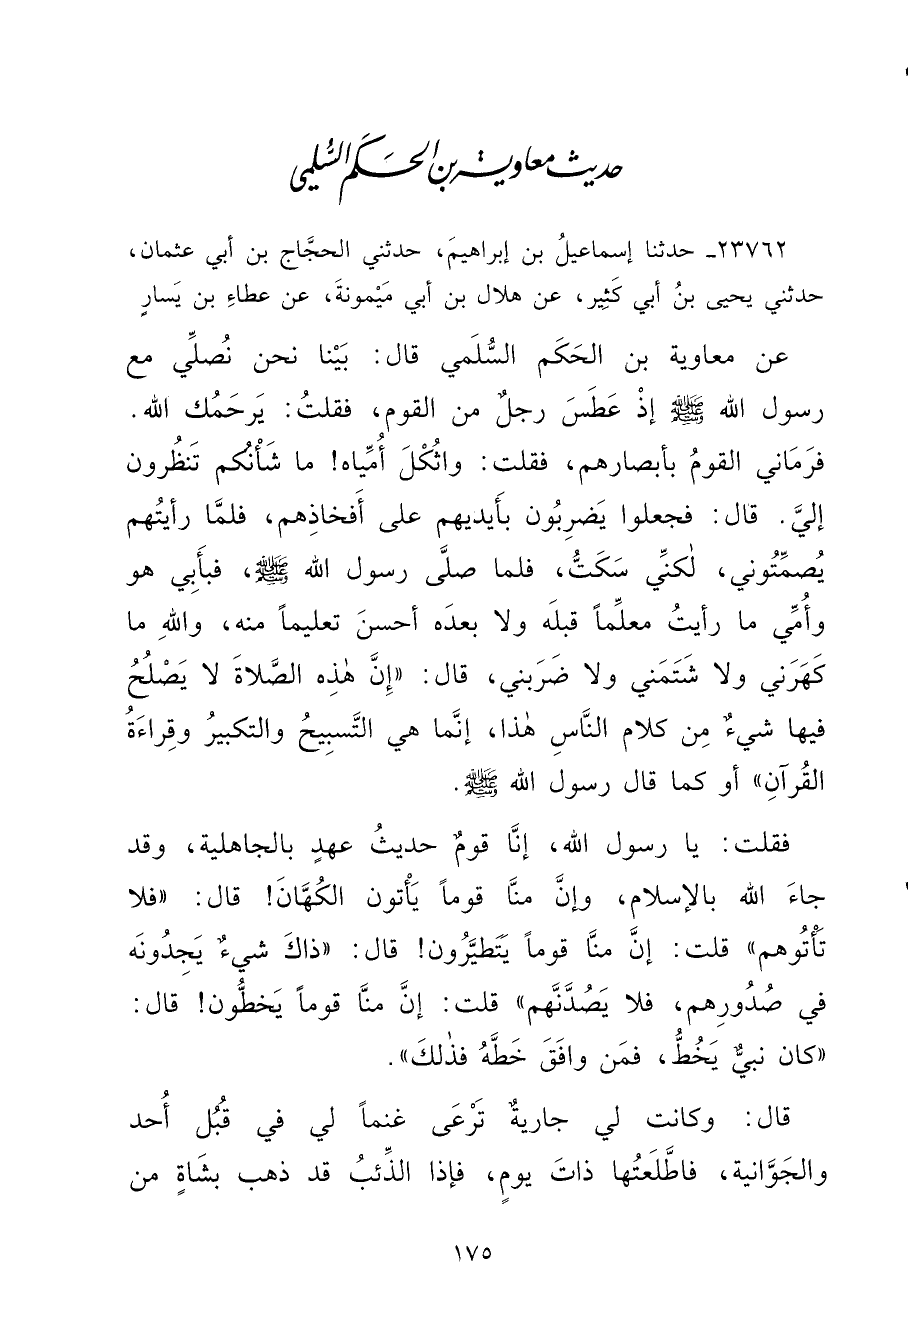 حديث معاوية بن الحكم السلمي
٢٣٧٦٢ـ حدثنا إسماعيلُ بن إبراهيمَ، حدثني الحجَّاج بن أبي عثمان،
حدثني يحيى بنُ أبي كَثِير، عن هلال بن أبي مَيْمونةَ، عن عطاءِ بن يَسارٍ
عن معاوية بن الحَكَم السُّلَمي قال: بَيْنا نحن نُصلِّي مع
رسول الله ﷺ إذْ عَطَسَ رجلٌ من القوم، فقلتُ: يَرحَمُك الله.
فرَمَاني القومُ بأبصارهم، فقلت: واثُكْلَ أُمِّياه! ما شَأْنُكم تَنظُرون
إليَّ. قال: فجعلوا يَضرِبُون بأَيديهم على أَفخاذِهم، فلمَّا رأيتُهم
يُصمِّتُوني، لٰكنِّي سَكَتُّ، فلما صلَّى رسول الله ﷺ، فبأَبِي هو
وأُمِّي ما رأيتُ معلِّماً قبلَه ولا بعدَه أحسنَ تعليماً منه، واللهِ ما
كَهَرَني ولا شَتَمَني ولا ضَرَبني، قال: «إِنَّ هٰذِه الصَّلاةَ لا يَصْلُحُ
فيها شيءٌ مِن كلام النَّاسِ هٰذا، إنَّما هي التَّسبِيحُ والتكبيرُ وقِراءَةُ
القُرآنِ» أو كما قال رسول الله ﷺ.
فقلت: يا رسول الله، إنَّا قومٌ حديثُ عهدٍ بالجاهلية، وقد
جاءَ الله بالإسلام، وإنَّ منَّا قوماً يَأْتون الكُهَّانَ! قال: «فلا
تَأْتُوهم» قلت: إنَّ منَّا قوماً يَتَطيَّرُون! قال: «ذاكَ شيءٌ يَجِدُونَه
في صُدُورِهم، فلا يَصُدَّنَّهم» قلت: إنَّ منَّا قوماً يَخطُّون! قال:
«كان نبيٌّ يَخُطُّ، فمَن وافَقَ خَطَّهُ فذٰلكَ».
قال: وكانت لي جاريةٌ تَرْعَى غنماً لي في قُبُل أُحد
والجَوَّانية، فاطَّلَعتُها ذاتَ يومٍ، فإذا الذِّئبُ قد ذهب بشَاةٍ من
١٧٥